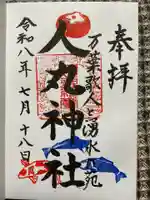 奉拝
万葉歌人と湧水の苑
人丸神社
令和八年七月十八日